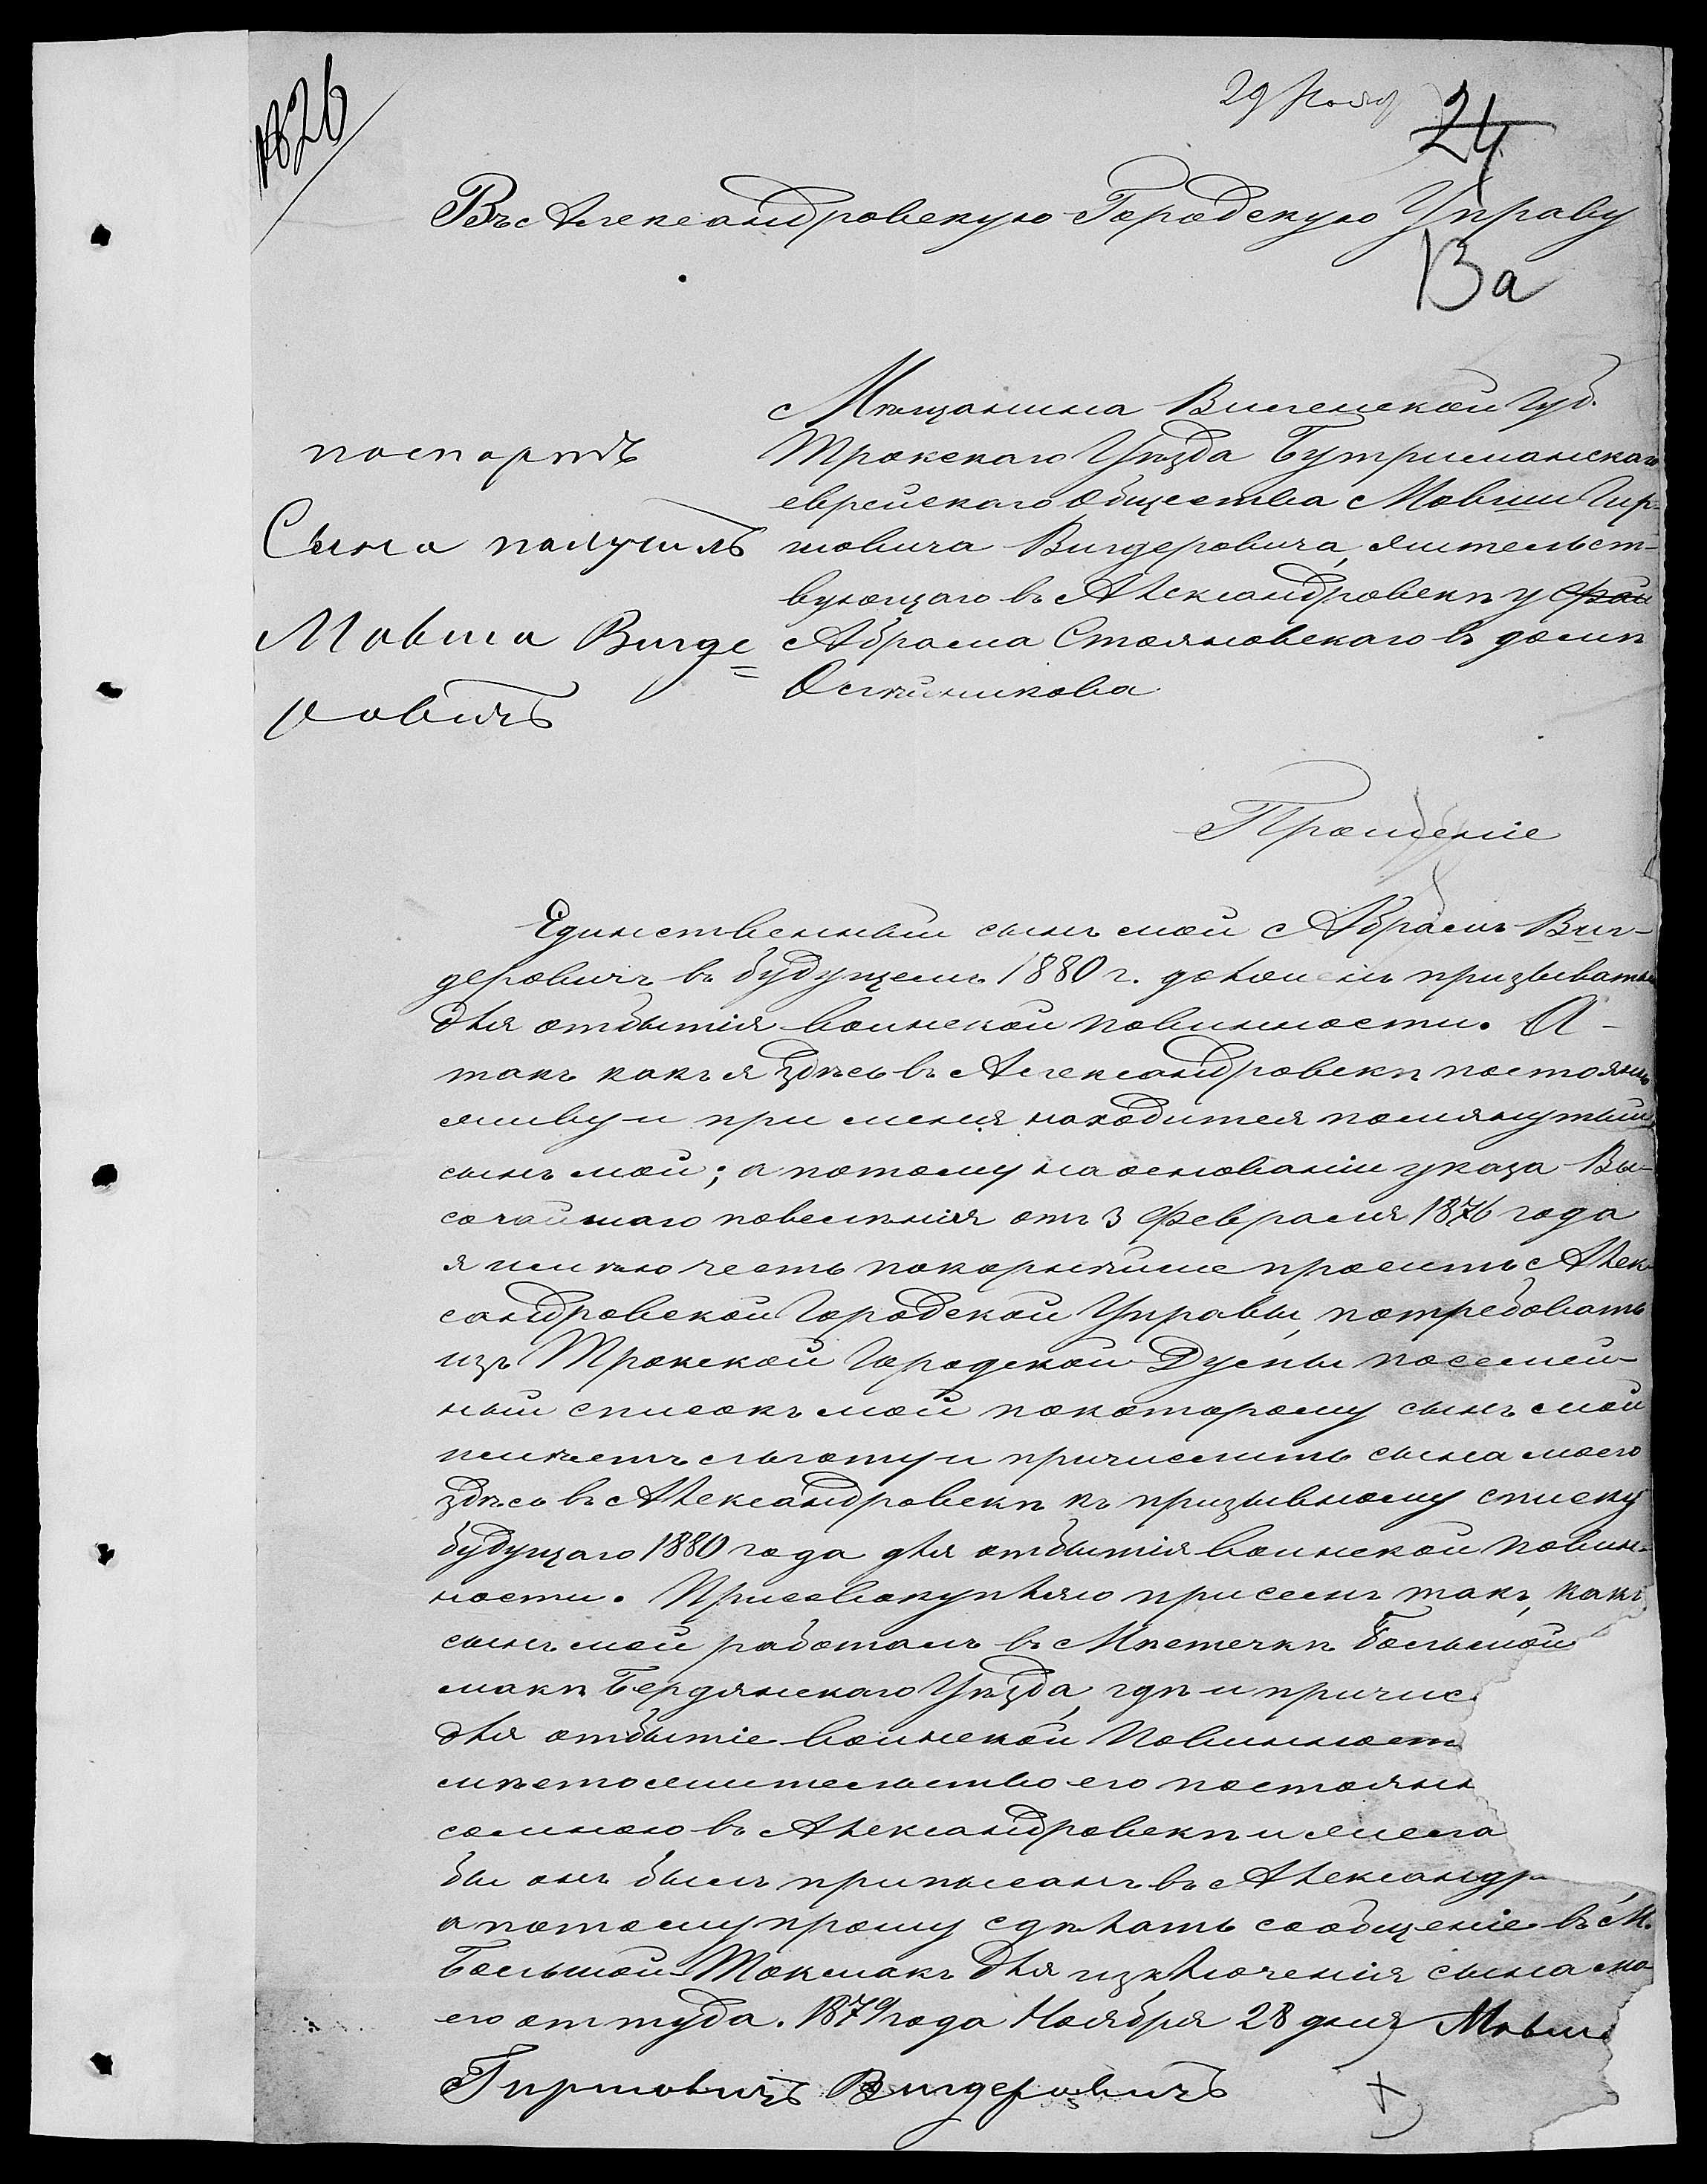 1826
29 Нояб
24
Въ Александровскую Городскую Управу
13а
Мѣщанина Виленской Губ.
Трокскаго Уѣзда Бутриманскаго
еврейскаго общества Мовши Гир-
шовича Вигдеровича, жительст-
вующаго въ Александровскѣ у
Абрама Стояновскаго въ домѣ
паспортъ
Сына получилъ
Мовша Вигде=
ровичъ
Прошеніе
Единственный сынъ мой Абрамъ Виг-
деровичъ въ будущемъ 1880 г. долженъ призыватся
для отбытія воинской повинности. А-
такъ какъ я здѣсь въ Александровскѣ постоянно
живу и при меня находится помянутый
сынъ мой; а потому на основаніи указа Вы-
сочайшаго повелѣнія отъ 3 Февраля 1876 года
я имѣю честь покорнѣйше просить Алек-
сандровской Городской Управы, потребовать
изъ Трокской Городской Думы посемей-
ный списокъ мой покоторому сынъ мой
имѣетъ льготу и причислить сына моего
здѣсь въ Александровскѣ къ призывному списку
будущаго 1880 года для отбытія воинской повин-
ности. Присовокупляю присемъ такъ, какъ
сынъ мой работалъ въ Мѣстечкѣ Большой
макѣ Бердянскаго Уѣзда, гдѣ и причис
для отбытіе воинской Повинност
мѣстожительство его постоянн
сомною въ Александровскѣ и жела
бы онъ былъ приписанъ въ Александр
а потому прошу сдѣлать сообщеніе въ М.
Большой-Токмакъ для изключенія сына мо-
его оттуда. 1879 года Ноября 28 дня Мовша
Гиршовичъ Вигдеровичъ